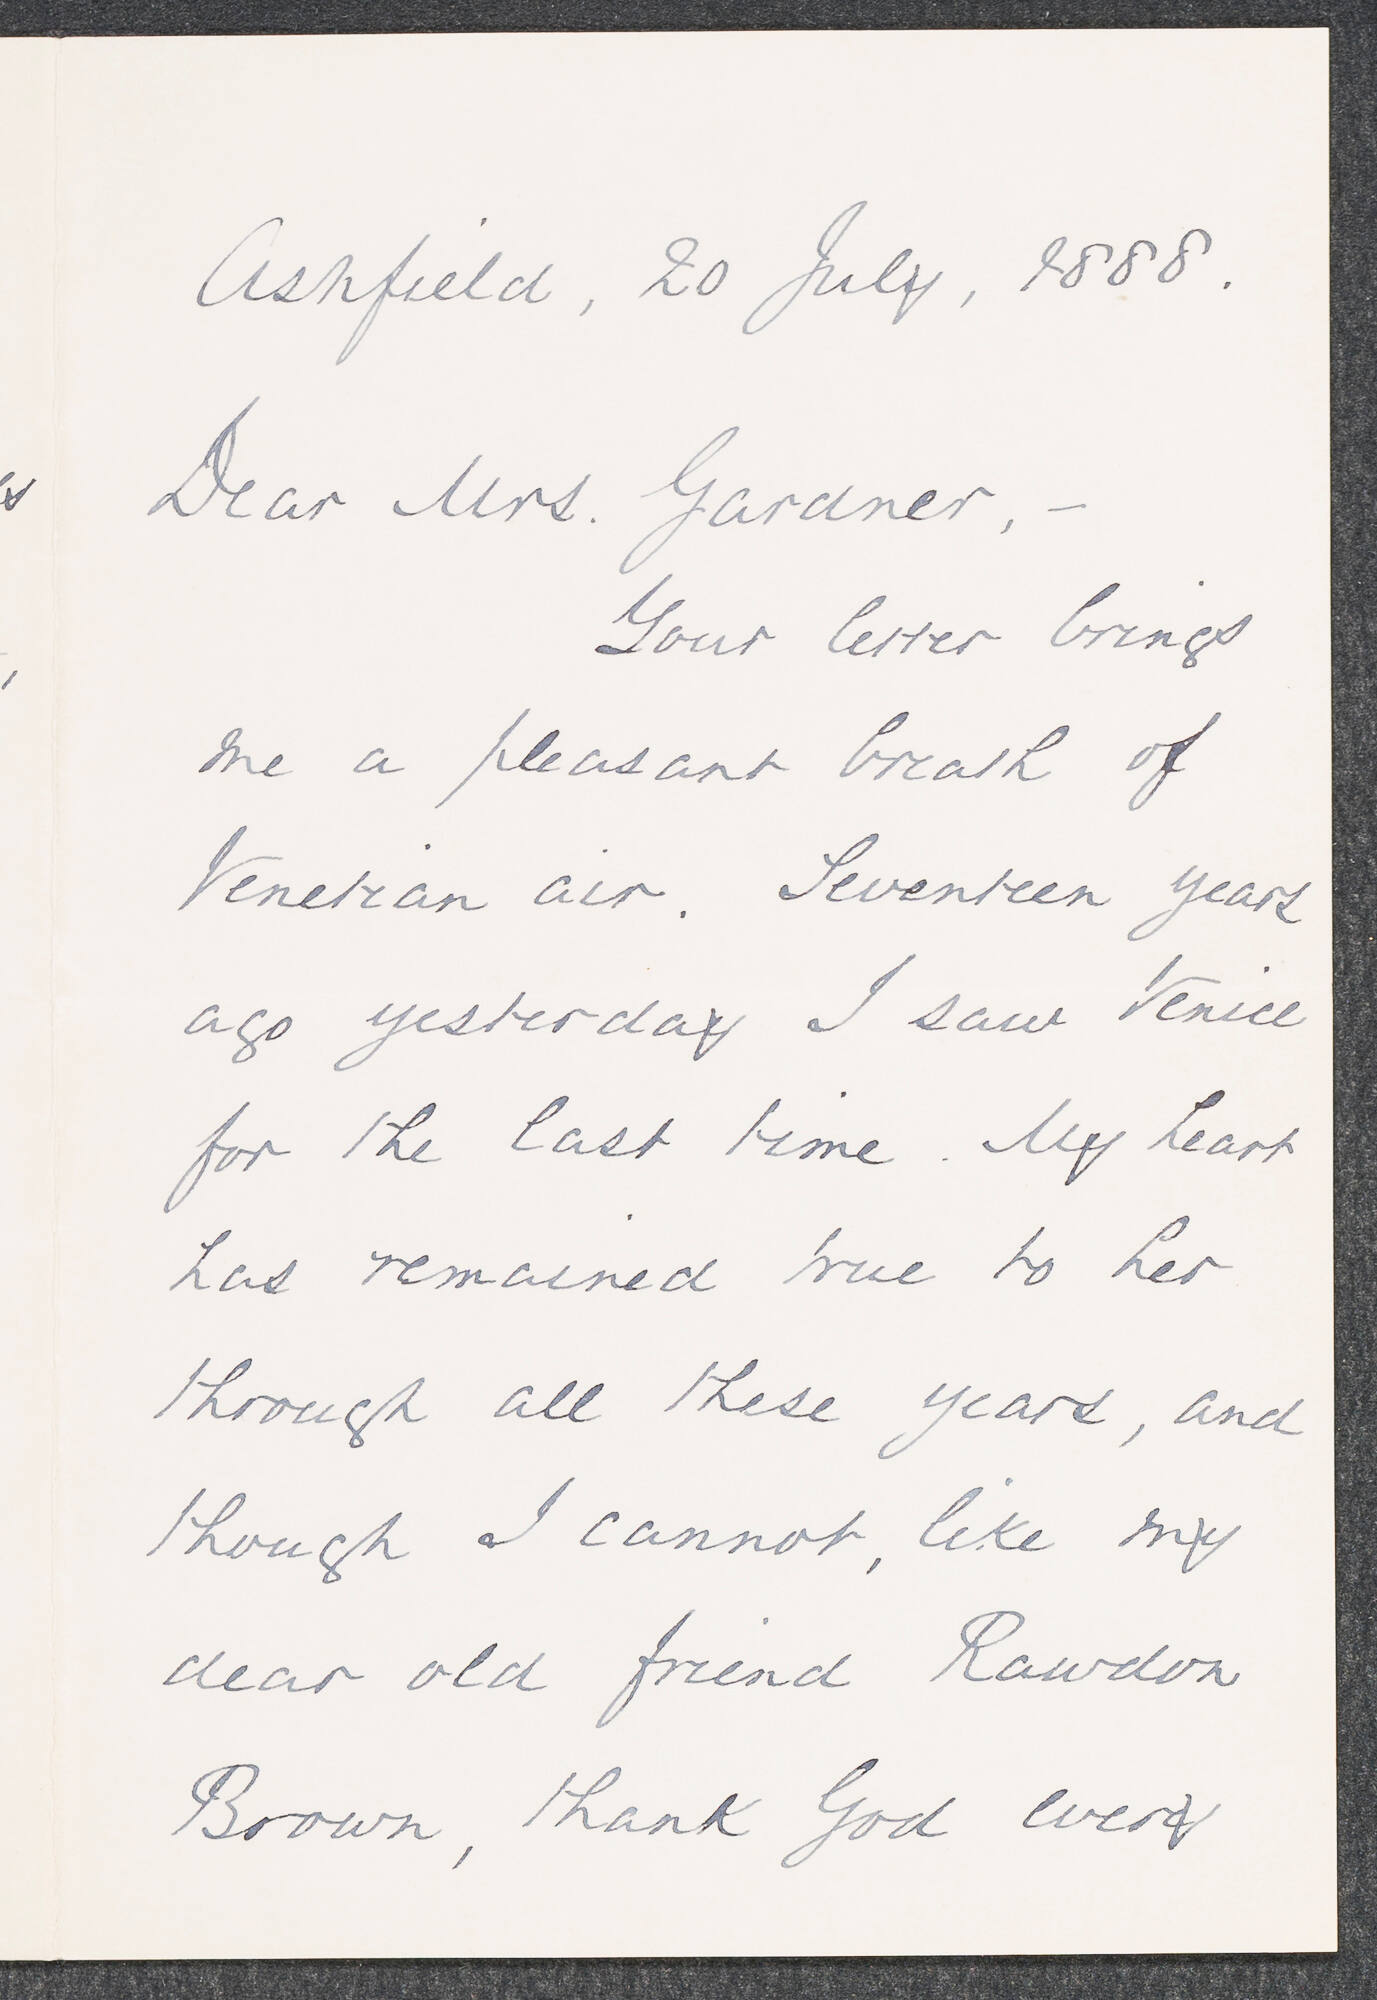 Ashfield, 20 July, 1888.
Dear Mrs. Gardner, –
Your letter brings
me a pleasant breath of
Venetian air. Seventeen years
ago yesterday I saw Venice
for the last time. My heart
has remained true to her
through all these years, and
though I cannot, like my
dear old friend Rawdon
Brown, thank God every